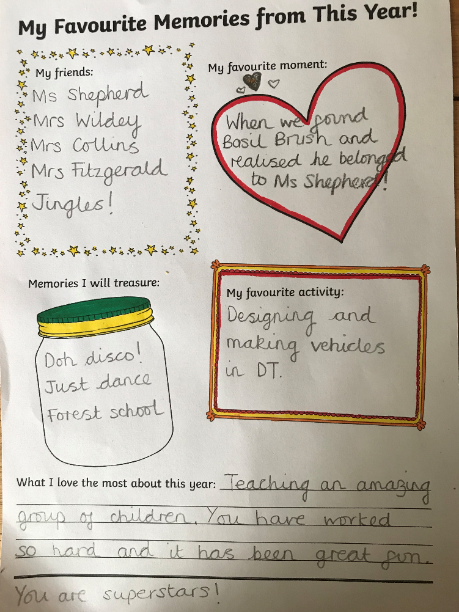 My Favourite Memories from This Year!
My friends:
Ms Shepherd
Mrs Wildey
Mrs Collins
Mrs Fitzgerald
Jingles!
My favourite moment:
When we found
Basil Brush and
realised he belonged
to Ms Shepherd!
Memories I will treasure:
Doh disco!
Just dance
Forest school
My favourite activity:
Designing and
making vehicles
in DT.
What I love the most about this year: Teaching an amazing
group of children. You have worked
so hard and it has been great fun.
You are superstars!